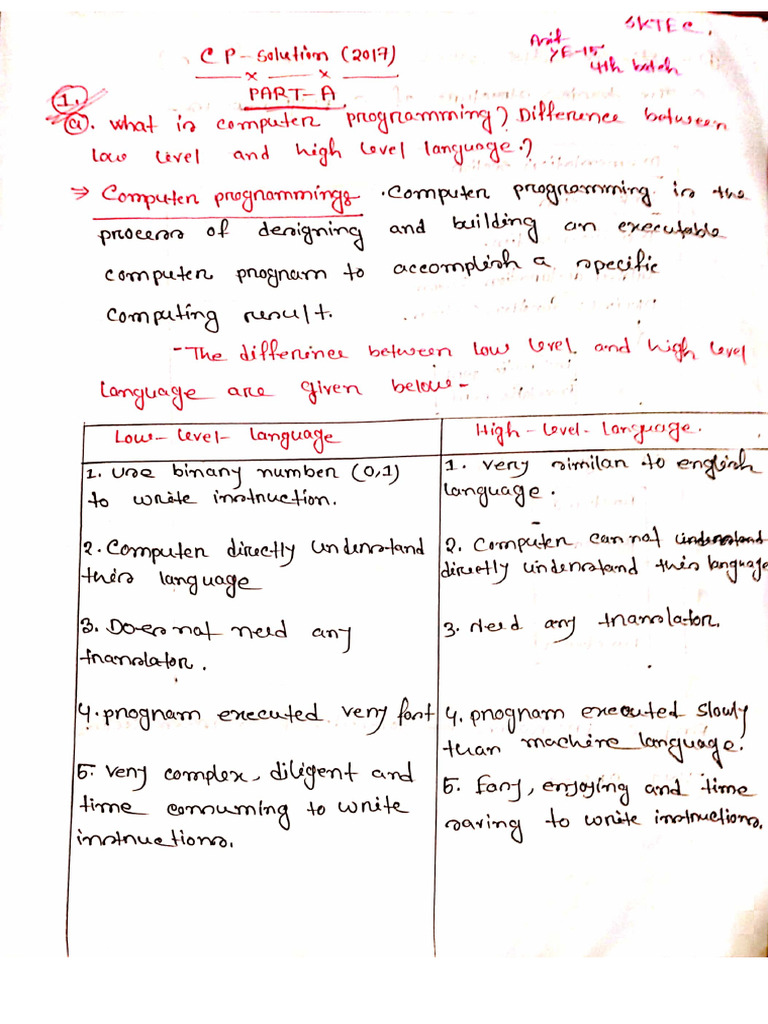 SKTEC.
YE-15
4th batch
CP-Solution (2017)
PART-A
1.
a. What is computer programming? Difference between
low level and high level language.?
⇒ Computer programmings. Computer programming is the
process of designing and building an executable
computer program to accomplish a specific
computing result.
- The difference between low level and high level
language are given below-
Low-level-language
1. use binary number (0,1)
to write instruction.
2. Computer directly understand
this language
3. Does not need any
translator.
4. program executed very fast
5. very complex, diligent and
time consuming to write
instructions.
High-level-language.
1. very similar to english
language.
2. Computer can not understand
directly understand this language
3. Need any translator.
4. program executed slowly
than machine language.
5. , enjoying and time
saving to write instructions.